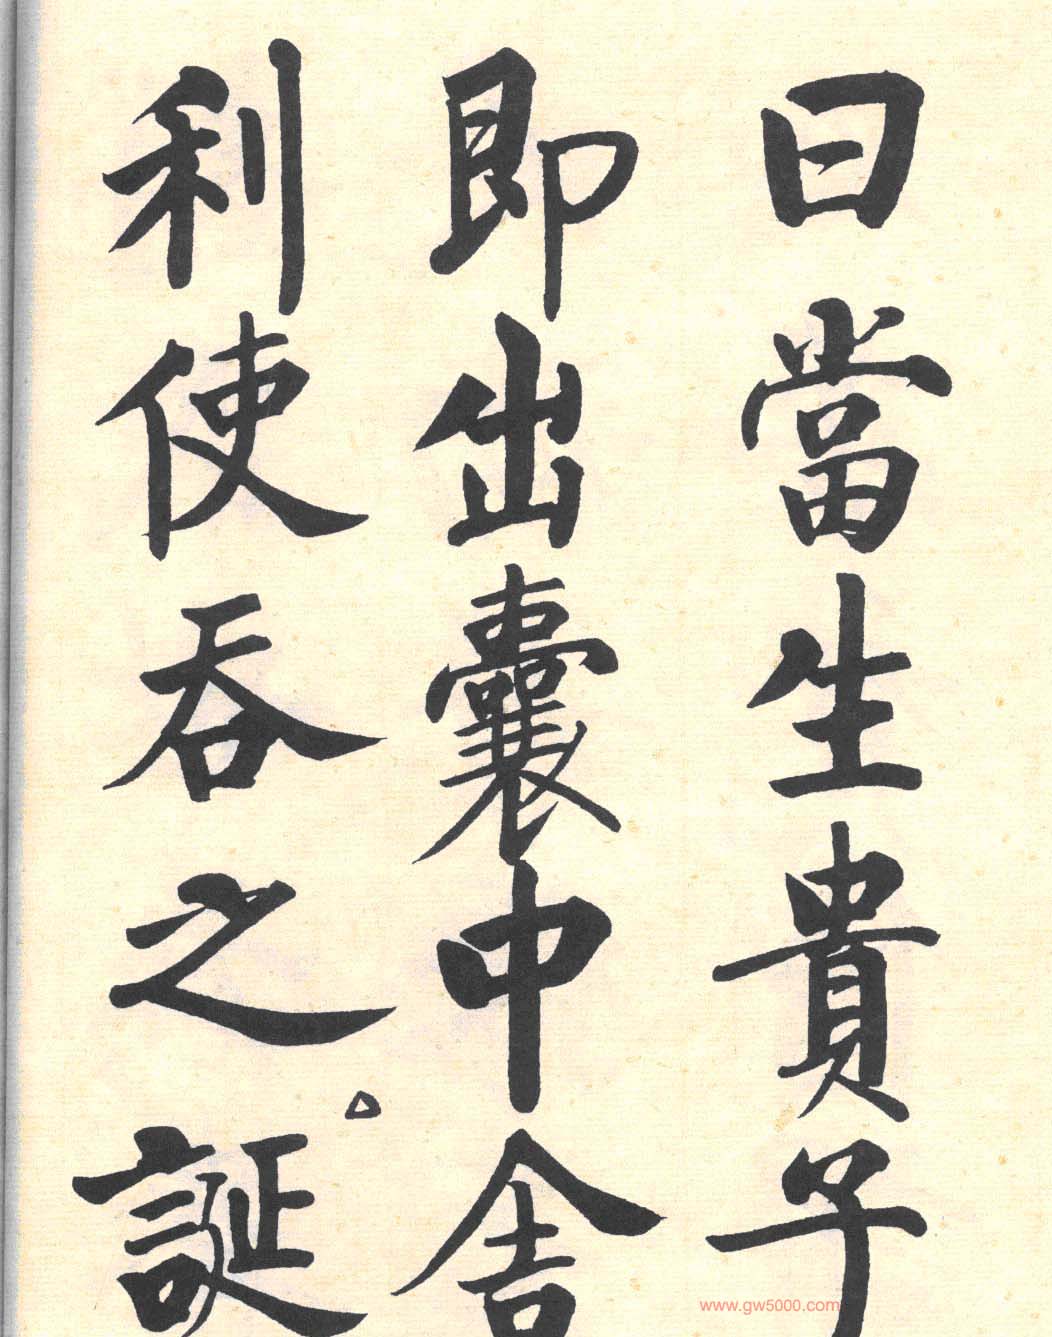 曰當生貴子
即出囊中舍
利使吞之。誕
www.gw5000.com